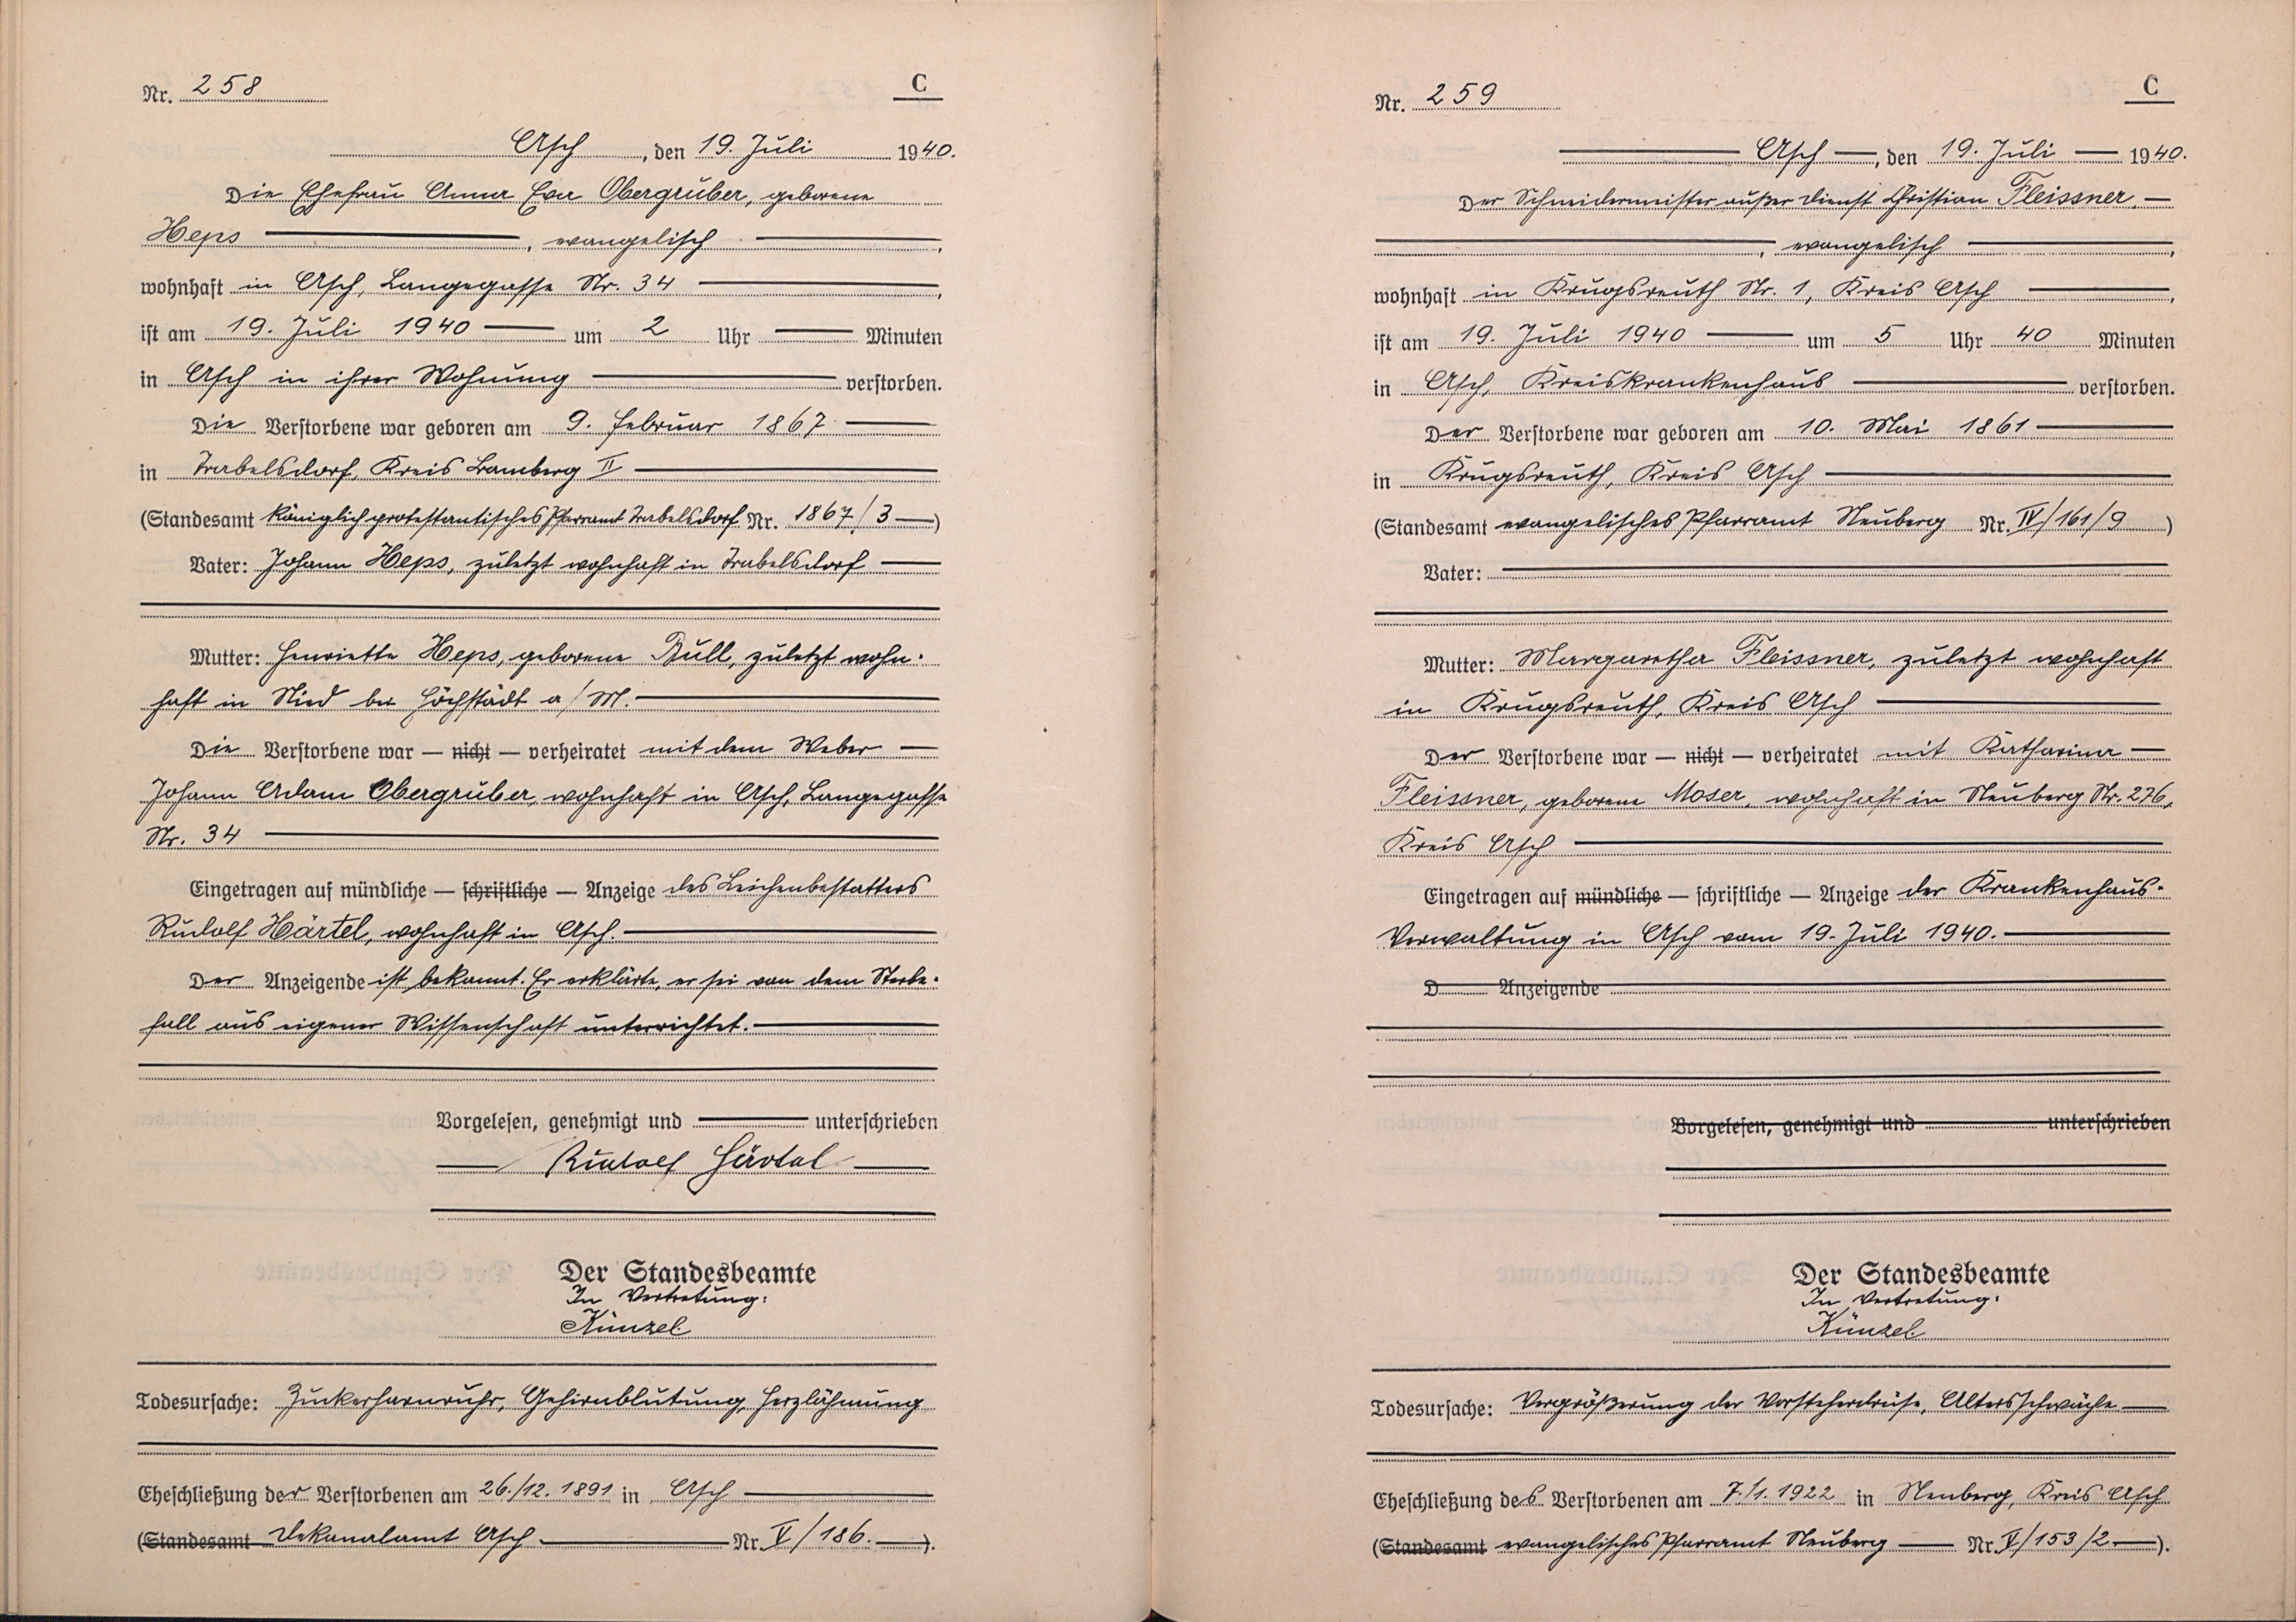 Nr. 258
C
Asch, den 19. Juli 1940.
Die Ehefrau Anna Eva Obergruber, geborene
Heps, evangelisch,
wohnhaft in Asch, Langegasse Nr. 34,
ist am 19. Juli 1940 um 2 Uhr Minuten
in Asch in ihrer Wohnung verstorben.
Die Verstorbene war geboren am 9. Februar 1867
in Trabelsdorf, Kreis Bamberg II
(Standesamt königlich protestantisches Pfarramt Trabelsdorf Nr. 1867/3)
Vater: Johann Heps, zuletzt wohnhaft in Trabelsdorf
Mutter: Henriette Heps, geborene Büll, zuletzt wohn-
haft in Nied bei Höchstädt a/M.
Die Verstorbene war — nicht — verheiratet mit dem Weber
Johann Adam Obergruber, wohnhaft in Asch, Langegasse
Nr. 34
Eingetragen auf mündliche — schriftliche — Anzeige des Leichenbestatters
Rudolf Härtel, wohnhaft in Asch.
Der Anzeigende ist bekannt. Er erklärte, er sei von dem Sterbe-
fall aus eigener Wissenschaft unterrichtet.
Vorgelesen, genehmigt und unterschrieben
Rudolf Härtel
Der Standesbeamte
In Vertretung:
Künzel
Todesursache: Zuckerharnruhr, Gehirnblutung, Herzlähmung
Eheschließung der Verstorbenen am 26./12. 1891 in Asch
(Standesamt Dekanalamt Asch Nr. V/186.).
Nr. 259
C
Asch, den 19. Juli 1940.
Der Schneidermeister außer Dienst Christian Fleissner,
, evangelisch,
wohnhaft in Krugsreuth Nr. 1, Kreis Asch,
ist am 19. Juli 1940 um 5 Uhr 40 Minuten
in Asch, Kreiskrankenhaus verstorben.
Der Verstorbene war geboren am 10. Mai 1861
in Krugsreuth, Kreis Asch
(Standesamt evangelisches Pfarramt Neuberg Nr. IV/161/9)
Vater:
Mutter: Margaretha Fleissner, zuletzt wohnhaft
in Krugsreuth, Kreis Asch
Der Verstorbene war — nicht — verheiratet mit Katharina
Fleissner, geborene Moser, wohnhaft in Neuberg Nr. 276,
Kreis Asch
Eingetragen auf mündliche — schriftliche — Anzeige der Krankenhaus-
Verwaltung in Asch vom 19. Juli 1940.
D Anzeigende
Vorgelesen, genehmigt und unterschrieben
Der Standesbeamte
In Vertretung:
Künzel
Todesursache: Vergrößerung der Vorsteherdrüse, Altersschwäche
Eheschließung des Verstorbenen am 7./1. 1922 in Neuberg, Kreis Asch
(Standesamt evangelisches Pfarramt Neuberg Nr. V/153/2).